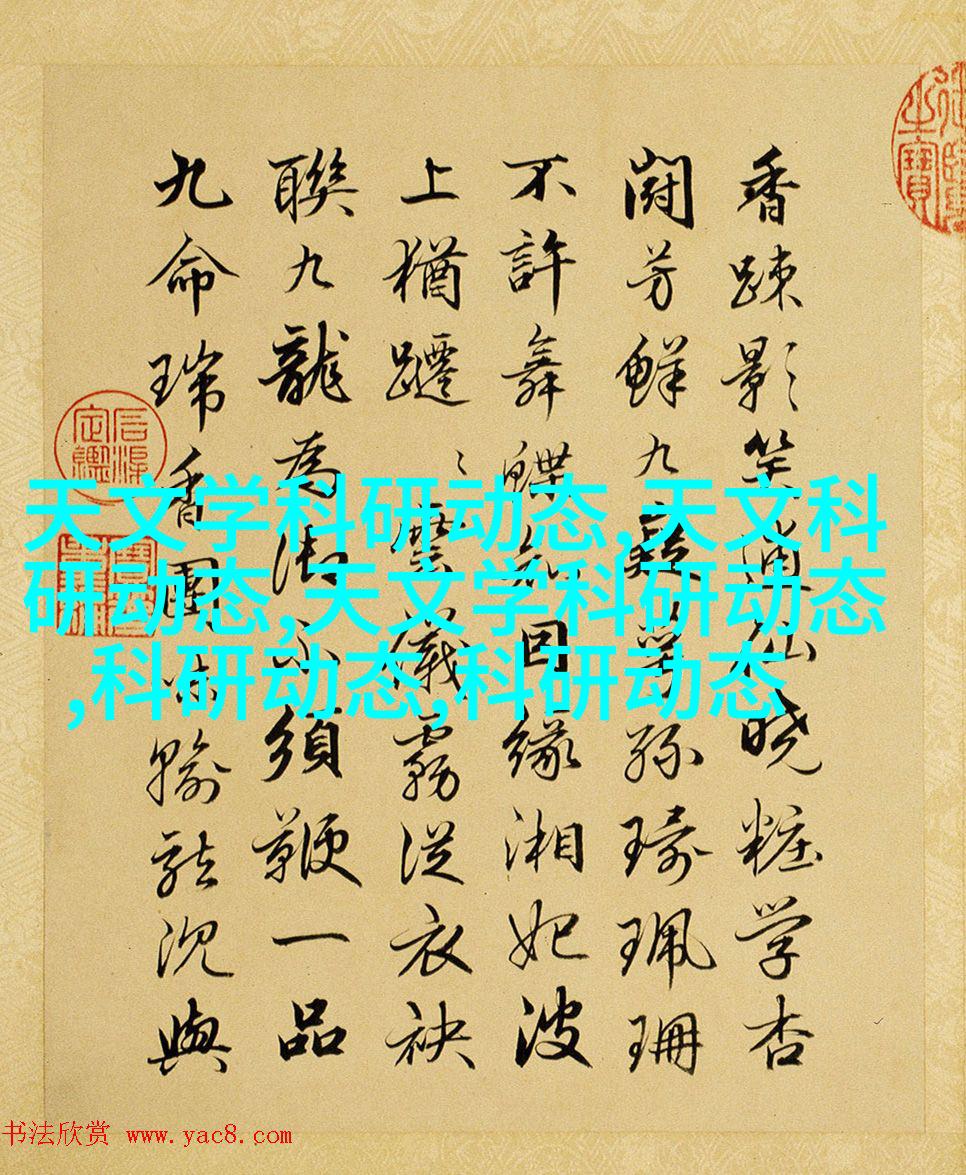 香踈影笑仙晓粧学杏
鬪芳鮮九孫珮珊
不許舞蝶知回緣湘妃波
上猶躚〻霧從衣袂
聯九龍為不須鞭一品
九命瑞香團輸況與
天文学科研动态,天文科
研动态,天文学科研动态
,科研动态,科研动态
书法欣赏 www.yac8.com